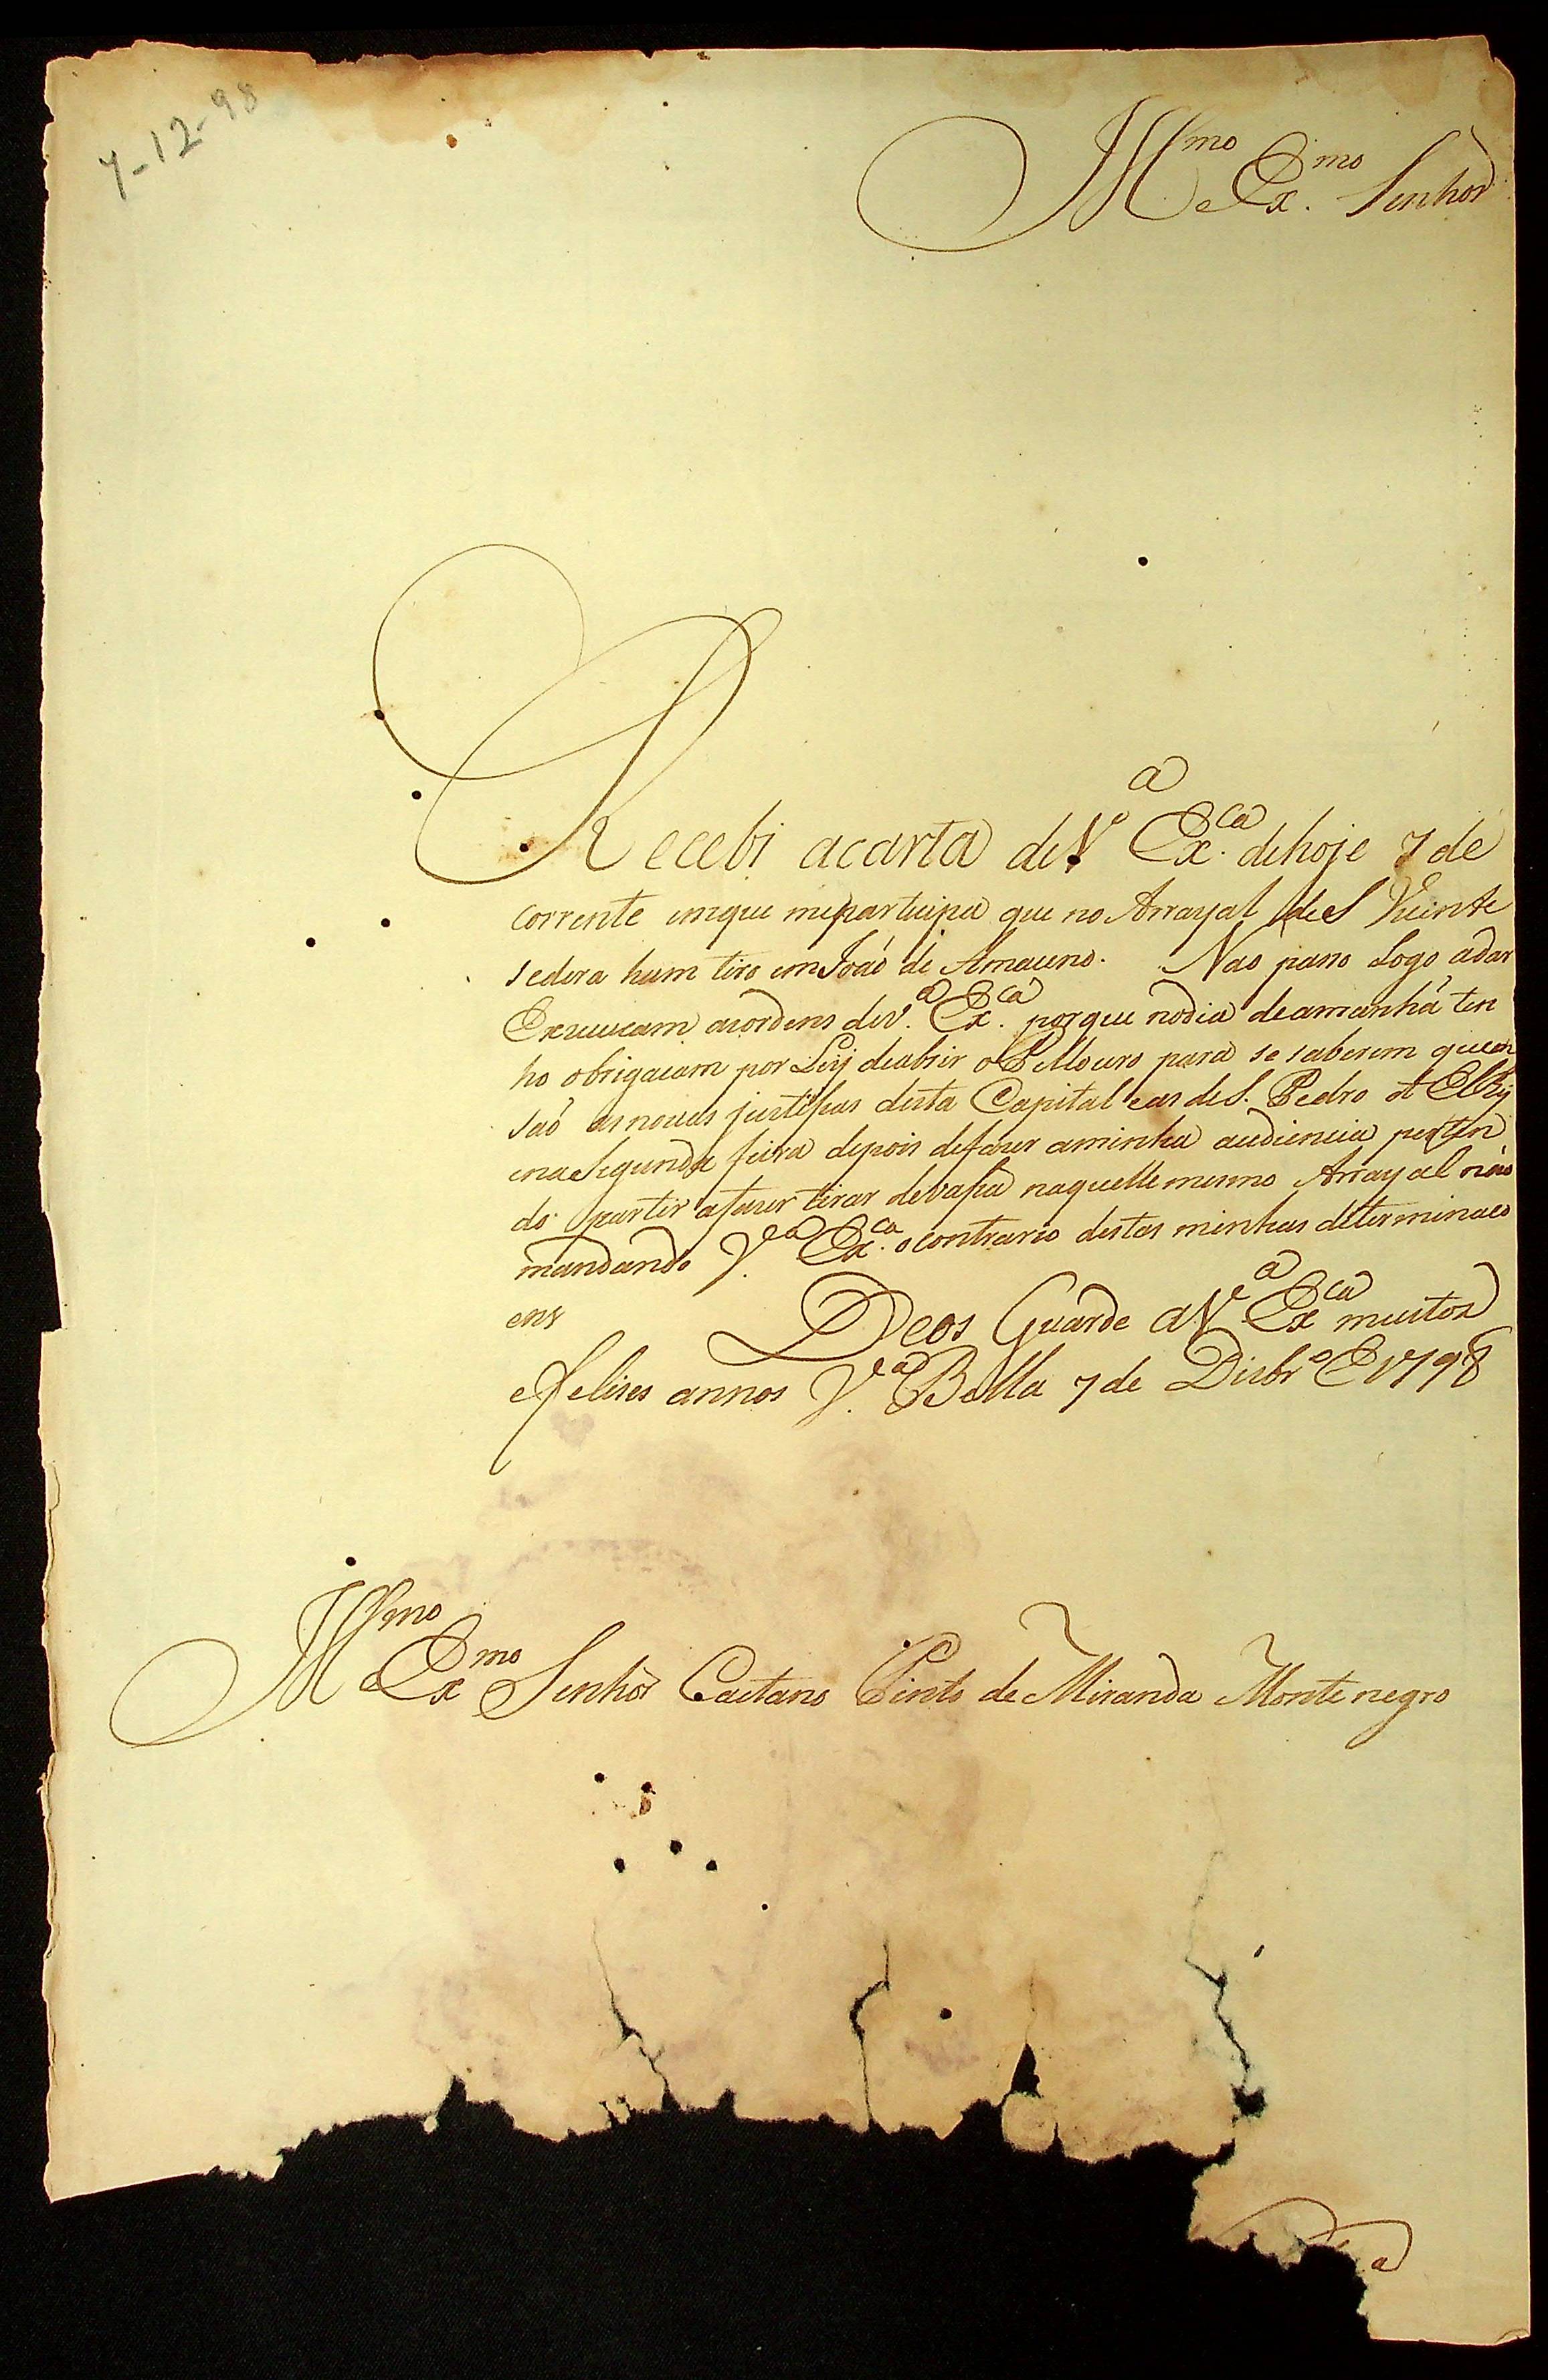 7-12-98
Illmo
eExmo. Senhor
Recebi acarta deVa Exca. dehoje 7 de
corrente emque meparticipa que no Arrayal de S Vicente
sedera hum tiro em Joaó de Amaceno. Nao passo Logo adar
Execucam aiordens deV.a Exca. porque nodia deamanhá ten
ho obrigacam por Leij deabrir oPellouro para se saberem quem
saó as novas justissas desta Capital eas de S. Pedro d ElRej
ena Segunda feira depois defaser aminha audiencia perten
do partir afaser tirar devassa naquelle mesmo Arrayal não
mandando V.a Exca. ocontrario destas minhas determinaco
ens
Deos Guarde aVa Exca muitos
efelises annos V.a Bella 7 de Disbro E 1798
Illmo
eExmo Senhor Caetano Pinto de Miranda Montenegro